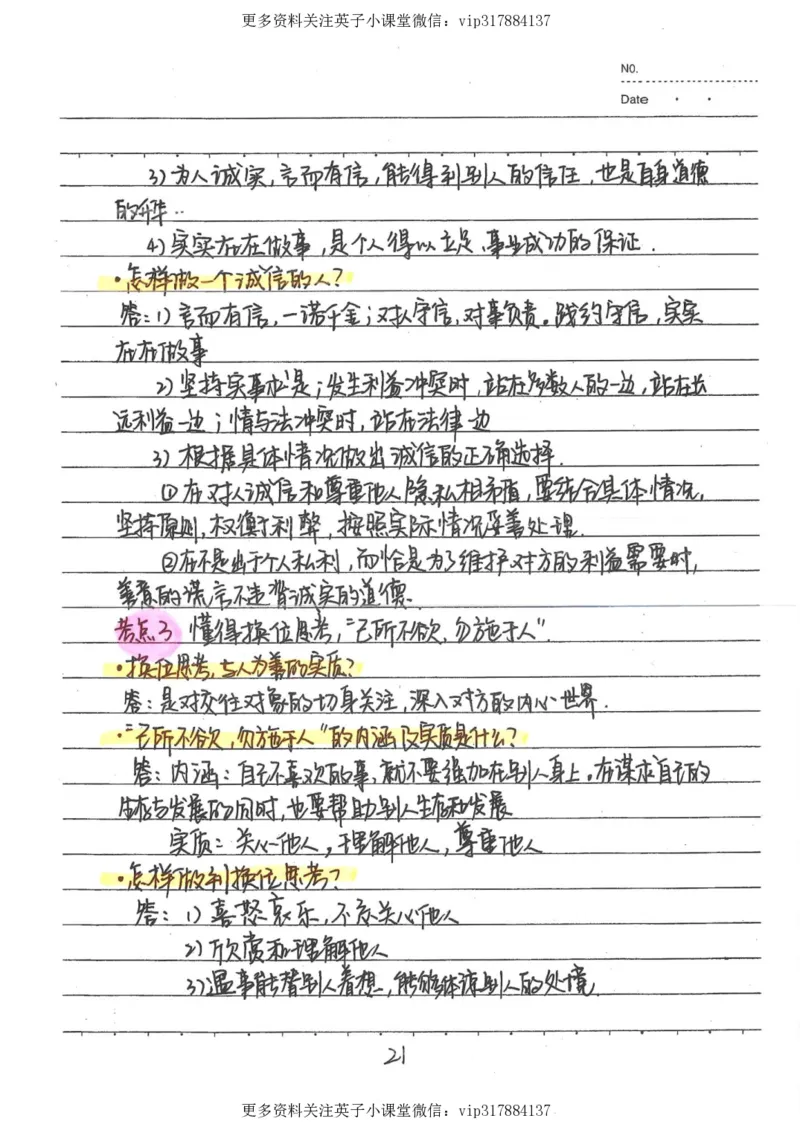 更多资料关注英子小课堂微信：vip317884137
NO.
Date
3)为人诚实,言而有信,能得到别人的信任,也是自身道德
的升华..
4)实实在在做事,是个人得以立足、事业成功的保证.
·怎样做一个诚信的人?
答:1)言而有信,一诺千金;对人守信,对事负责。践约守信,实实
在在做事
2)坚持实事求是;发生利益冲突时,站在多数人的一边,站在长
远利益一边;情与法冲突时,站在法律一边
3)根据具体情况做出诚信的正确选择.
①在对人诚信和尊重他人隐私相矛盾,要结合具体情况,
坚持原则,权衡利弊,按照实际情况妥善处理.
②在不是出于个人私利,而恰是为了维护对方的利益需要时,
善意的谎言不违背诚实的道德.
考点3 懂得换位思考,"己所不欲,勿施于人".
·换位思考,与人为善的实质?
答:是对交往对象的切身关注,深入对方的内心世界.
·"己所不欲,勿施于人"的内涵及实质是什么?
答:内涵:自己不喜欢的事,就不要强加在别人身上。在谋求自己的
生存与发展的同时,也要帮助别人生存和发展
实质:关心他人,理解他人,尊重他人
·怎样做到换位思考?
答:1)喜怒哀乐,不忘关心他人
2)欣赏和理解他人
3)遇事能替别人着想,能够体谅别人的处境.
21
更多资料关注英子小课堂微信：vip317884137